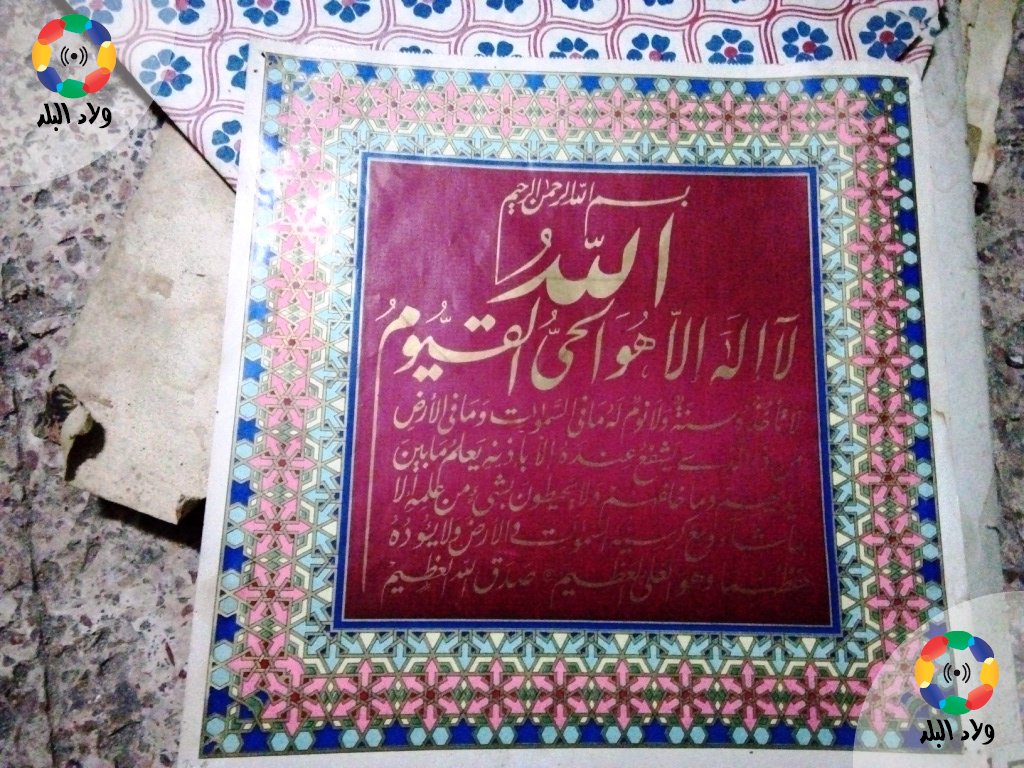 ولاد البلد
بسم الله الرحمن الرحيم
اللهُ
لآ اله الاّ هُوَ الحىُّ القيُّومُ
لا تأخذه سنة ولا نوم لهُ ما فى السَّموات وَمَا فى الأرض
من ذا الذے يشفعُ عندهُ الا باذنه يَعلمُ مَا بين
ايديهم وما خلفهم ولا يحيطون بشىءٍ من علمه الا
بما شاء وسع كرسيه السموات والارض ولا يؤدهُ
حفظهما وهو العلى العظيم صَدَق اللهُ العَظيمْ
ولاد البلد